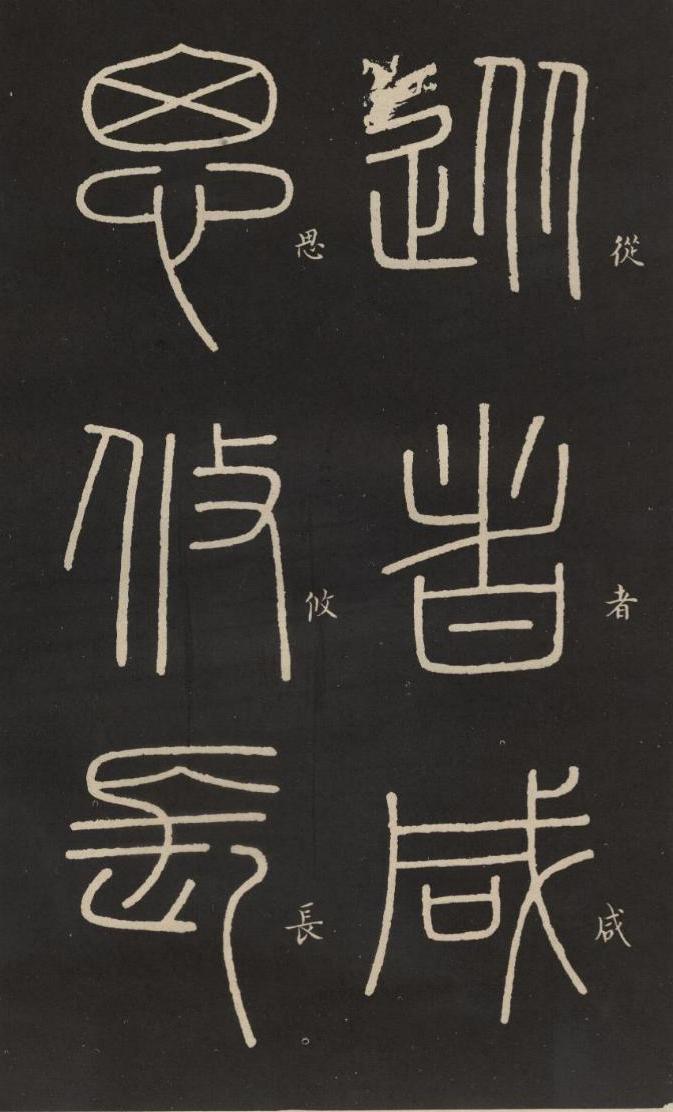 從者咸
思攸長